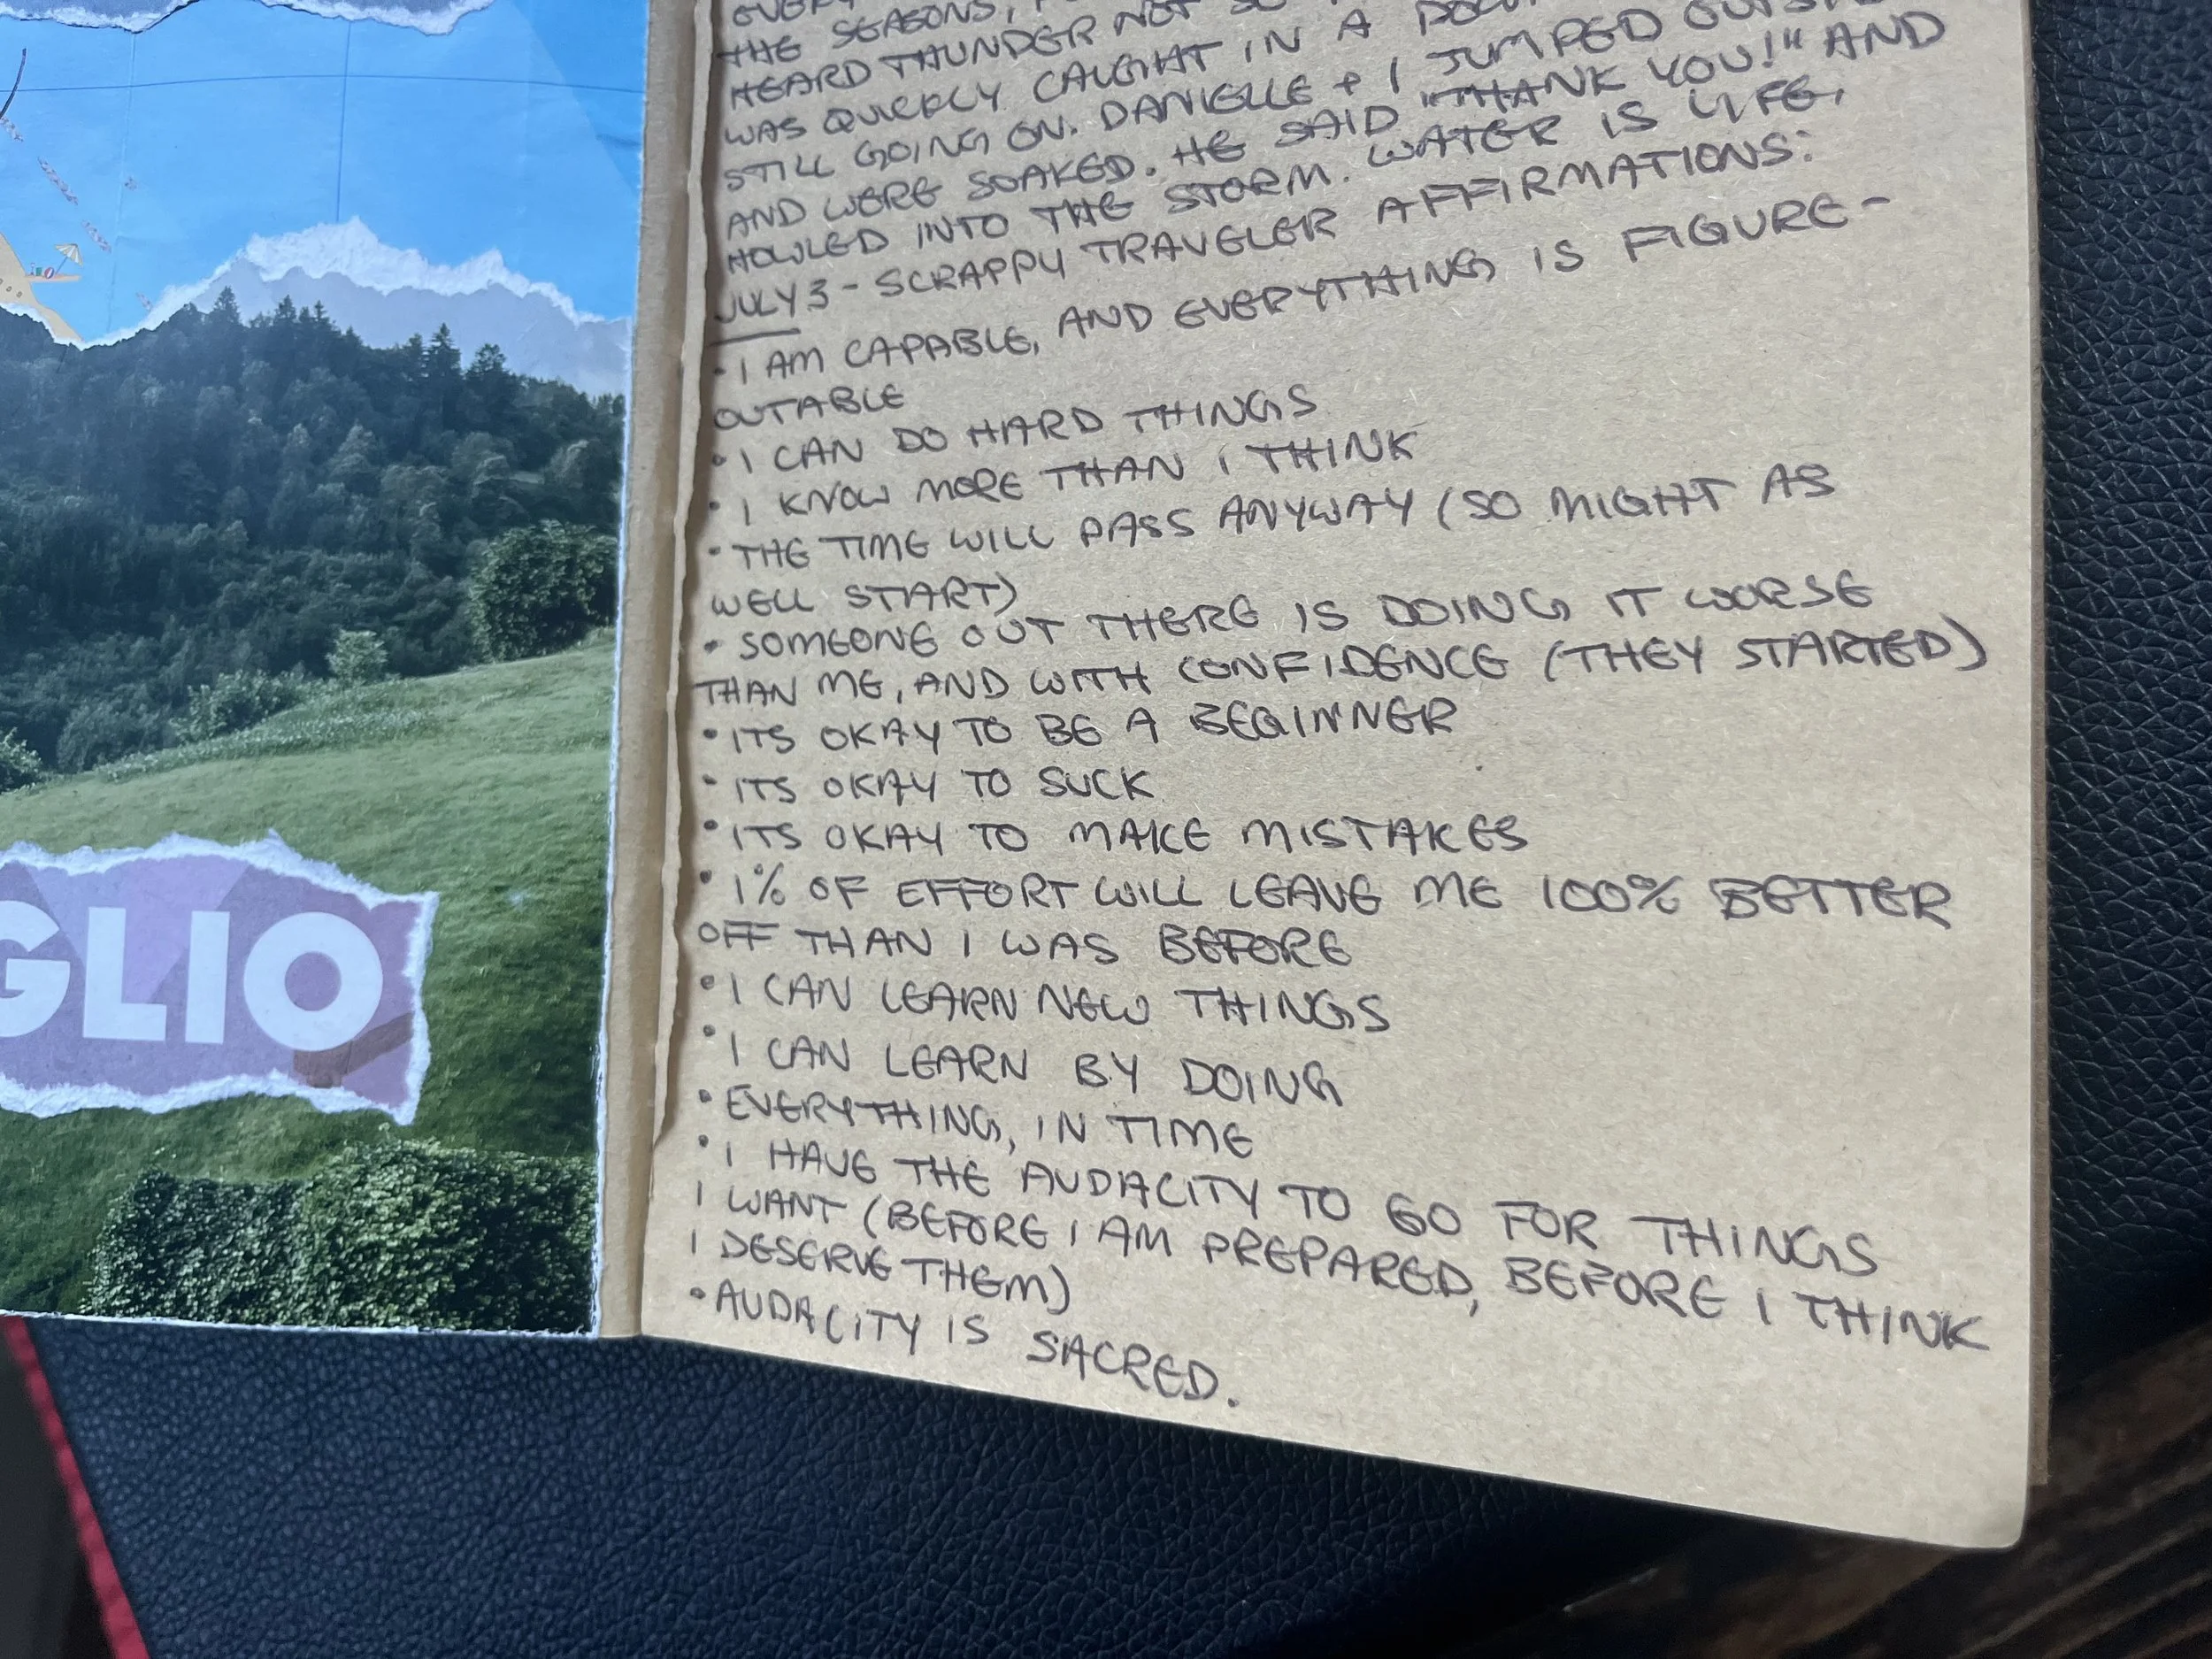 GLIO
THE SEASONS,
HEARD THUNDER NOT SO
WAS QUICKLY CAUGHT IN A
STILL GOING ON. DANIELLE + I JUMPED
AND WERE SOAKED. HE SAID "THANK YOU!" AND
HOWLED INTO THE STORM. WATER IS LIFE.
JULY 3 - SCRAPPY TRAVELER AFFIRMATIONS:
• I AM CAPABLE, AND EVERYTHING IS FIGURE-
OUTABLE
• I CAN DO HARD THINGS
• I KNOW MORE THAN I THINK
• THE TIME WILL PASS ANYWAY (SO MIGHT AS
WELL START)
• SOMEONE OUT THERE IS DOING IT WORSE
THAN ME, AND WITH CONFIDENCE (THEY STARTED)
• ITS OKAY TO BE A BEGINNER
• ITS OKAY TO SUCK
• ITS OKAY TO MAKE MISTAKES
• 1% OF EFFORT WILL LEAVE ME 100% BETTER
OFF THAN I WAS BEFORE
• I CAN LEARN NEW THINGS
• I CAN LEARN BY DOING
• EVERYTHING, IN TIME
• I HAVE THE AUDACITY TO GO FOR THINGS
I WANT (BEFORE I AM PREPARED, BEFORE I THINK
I DESERVE THEM)
• AUDACITY IS SACRED.